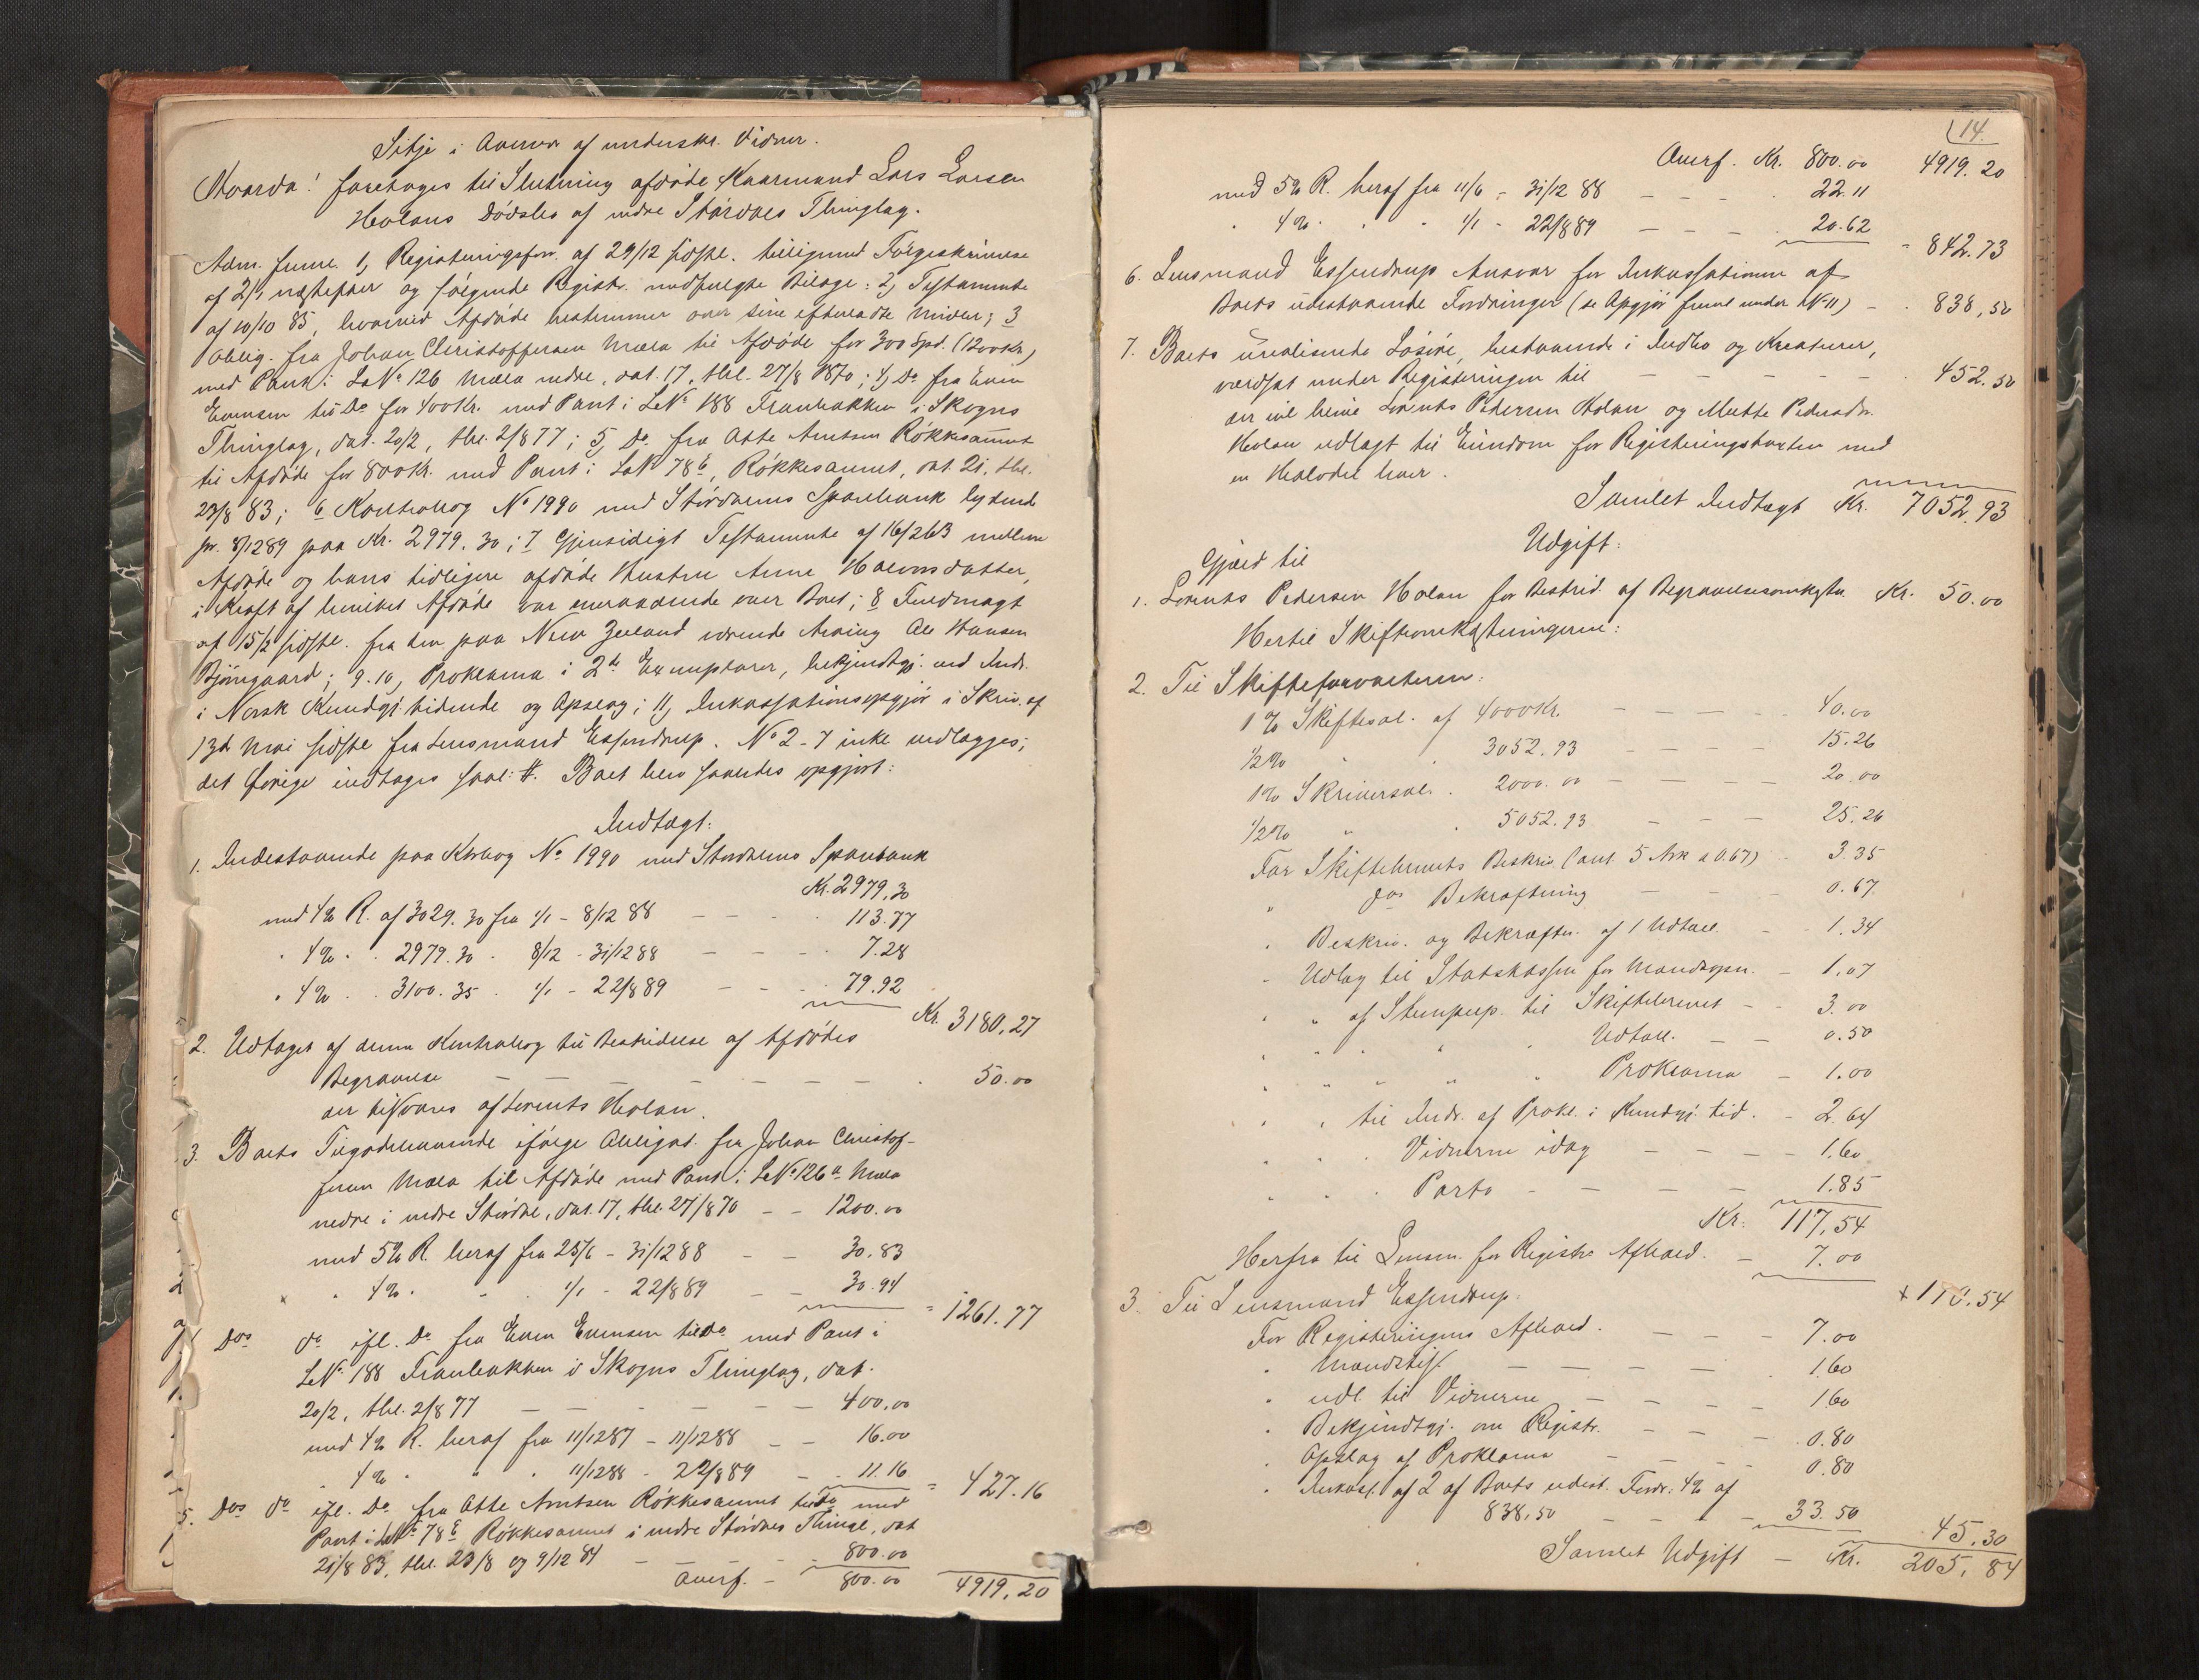 Sitje i Overvær af underskr. Vidner.
Hvorda! foretoges til Slutning afdøde Kaarmand Lars Larsen
Holans Dødsbo af nedre Størdals Thinglag.
Adm. freml. 1, Registreringsforr. af 29/12 sidstl. tilligemed Følgeskrivelse
af 2/1 næstefter og følgende Registr. medfulgte Bilage: 2, Testamente
af 10/10 85, hvorved Afdøde bestemmer over sine efterladte Midler; 3
Oblig. fra Johan Christoffersen Mæla til Afdøde for 300 Spd. (1200 Kr.)
med Pant i LNo 126 Mæla nedre, dat. 17, thl. 27/8 1870; 4, Do fra Even
Evensen til Do for 400 Kr. med Pant i LNo 188 Tranbakken i Skogns
Thinglag, dat. 20/2, thl. 2/8 77; 5, Do fra Otte Arntsen Røkkesamnet
til Afdøde for 800 Kr. med Pant i LNo 78 b, Røkkesamnet, dat. 21, thl.
23/8 83; 6 Kontrabog No 1990 med Størdalens Sparebank lydende
pr. 8/12 89 paa Kr. 2979.30; 7 Gjensidigt Testamente af 16/2 63 mellem
Afdøde og hans tidligere afdøde Hustru Anne Halvorsdatter,
i Kraft af hvilket Afdøde var eneraadende over Boet; 8 Fuldmagt
af 15/2 sidstl. fra den paa New Zeeland værende Arving Ole Hansen
Bjørngaard; 9.10, Proklama i 2de Exemplarer, bekjendtgj. ved Indr.
i Norsk Kundgj.tidende og Opslag; 11, Inkassationsopgjør i Skriv. af
13de Mai sidstl fra Lensmand Essendrup. No 2-7 inkl. vedlægges;
det øvrige indtages saal: #. Boet blev saaledes opgjort:
Indtægt:
1. Indestaaende paa Ktrbog No 1990 med Størdalens Sparebank
Kr. 2979,30
med 4% R. af 3029.30 fra 1/1 - 8/12 88 - - - 113.77
" 4% " " 2979.30 " 8/12 - 31/12 88 - - - 7.28
" 4% " " 3100.35 " 1/1 - 22/8 89 - - - 79.92
Kr. 3180,27
2. Udtaget af denne Kontrabog til Bestridelse af Afdødes
Begravelse - - - - - - - 50.00
der tilsvares af Lorents Holan.
3. Boets Tilgodehavende ifølge Obligat. fra Johan Christof-
fersen Mæla til Afdøde med Pant i LNo 126 a Mæla
nedre i nedre Størdal, dat. 17, thl. 27/8 70 - - 1200.00
med 5% R. heraf fra 25/6 - 31/12 88 - - 30.83
" 4% " " 1/1 - 22/8 89 - - 30.94
= 1261.77
Dos do ifl. Do fra Even Evensen til Do med Pant i
LNo 188 Tranbakken i Skogns Thinglag, dat.
20/2, thl. 2/8 77 - - - - - - 400,00
med 4% R. heraf fra 11/12 87 - 11/12 88 - - 16.00
" 4% " " " 11/12 88 - 22/8 89 - - 11.16
= 427.16
5. Dos do ifl. Do fra Otte Arntsen Røkkesamnet til Do med
Pant i LNo 78 b, Røkkesamnet i nedre Størdals Thingl., dat
21/8 83, thl. 23/8 og 9/12 84 - - - 800.00
Overf. - 800.00 4919.20
14.
Overf. Kr. 800.00 4919.20
med 5% R. heraf fra 11/6 - 31/12 88 - - - 22.11
" 4% " " " 1/1 - 22/8 89 - - - 20.62
" 842.73
6. Lensmand Essendrups Ansvar for Inkassationen af
Boets udestaaende Fordringer (se Opgjør freml under No 11) - 838,50
7. Boets urealiserede Løsøre, bestaaende i Indbo og Kreaturer,
værdsat under Registreringen til - - - - - 452.50
der vil blive Lorents Pedersen Holan og Mette Pedersdr.
Holan udlagt til Eiendom for Registreringstaxten med
en Halvdel hver.
Samlet Indtægt Kr. 7052.93
Udgift:
Gjæld til
1. Lorents Pedersen Holan for Bestrid. af Begravelsesomkostn. Kr. 50.00
Hertil Skifteomkostningerne:
2. Til Skifteforvalteren:
1% Skiftesal. af 4000 Kr. - - - - - 40.00
1/2% " " 3052.93 - - - - 15.26
1% Skriversal. " 2000.00 - - - - 20.00
1/2% " " 5052.93 - - - 25.26
For Skiftebrevets Beskriv. (ant. 5 Ark a 0.67) - 3.35
" dos Bekræftning - - - 0.67
" Beskriv. og Bekræftn. af 1 Udtal. - - 1.34
" Udlæg til Statskassen for Mandsopn. - 1.07
" " af Stempelp. til Skiftebrevet - - 3.00
" " " " Udtal. - - 0.50
" " " " " Proklama - 1.00
" " til Indr. af Prokl. i Kundgj.tid. - 2.64
" " " Vidnerne idag - - - - 1.60
" " " Porto - - - - 1.85
Kr. 117,54
Herfra til Lensm. for Registrs Afhold. - 7.00
+ 110.54
3. Til Lensmand Essendrup:
For Registreringens Afhold. - - - 7.00
" Mandstift - - - - 1.60
" udl. til Vidnerne - - - - 1.60
" Bekjendtgj. om Registr. - - - 0.80
" Opslag af Proklama - - - 0.80
" Inkass. af 2 af Boets udest. Fordr. 4% af
838,50 - - - - 33.50
45,30
Samlet Udgift - Kr. 205,84